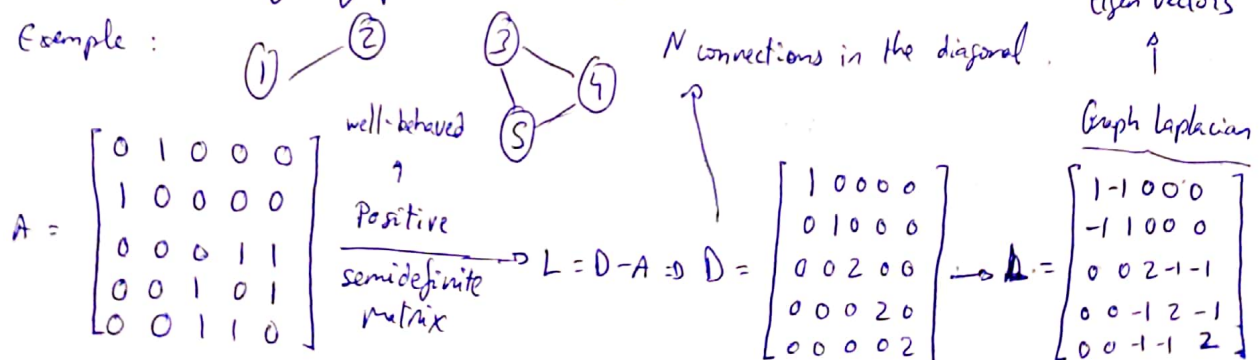 Eigen vectors
Example :
1 2 3 4 5
N connections in the diagonal.
Graph Laplacian
well-behaved
Positive
semidefinite
matrix
A =
0 1 0 0 0
1 0 0 0 0
0 0 0 1 1
0 0 1 0 1
0 0 1 1 0
L = D - A ⇒ D =
1 0 0 0 0
0 1 0 0 0
0 0 2 0 0
0 0 0 2 0
0 0 0 0 2
L =
1 -1 0 0 0
-1 1 0 0 0
0 0 2 -1 -1
0 0 -1 2 -1
0 0 -1 -1 2